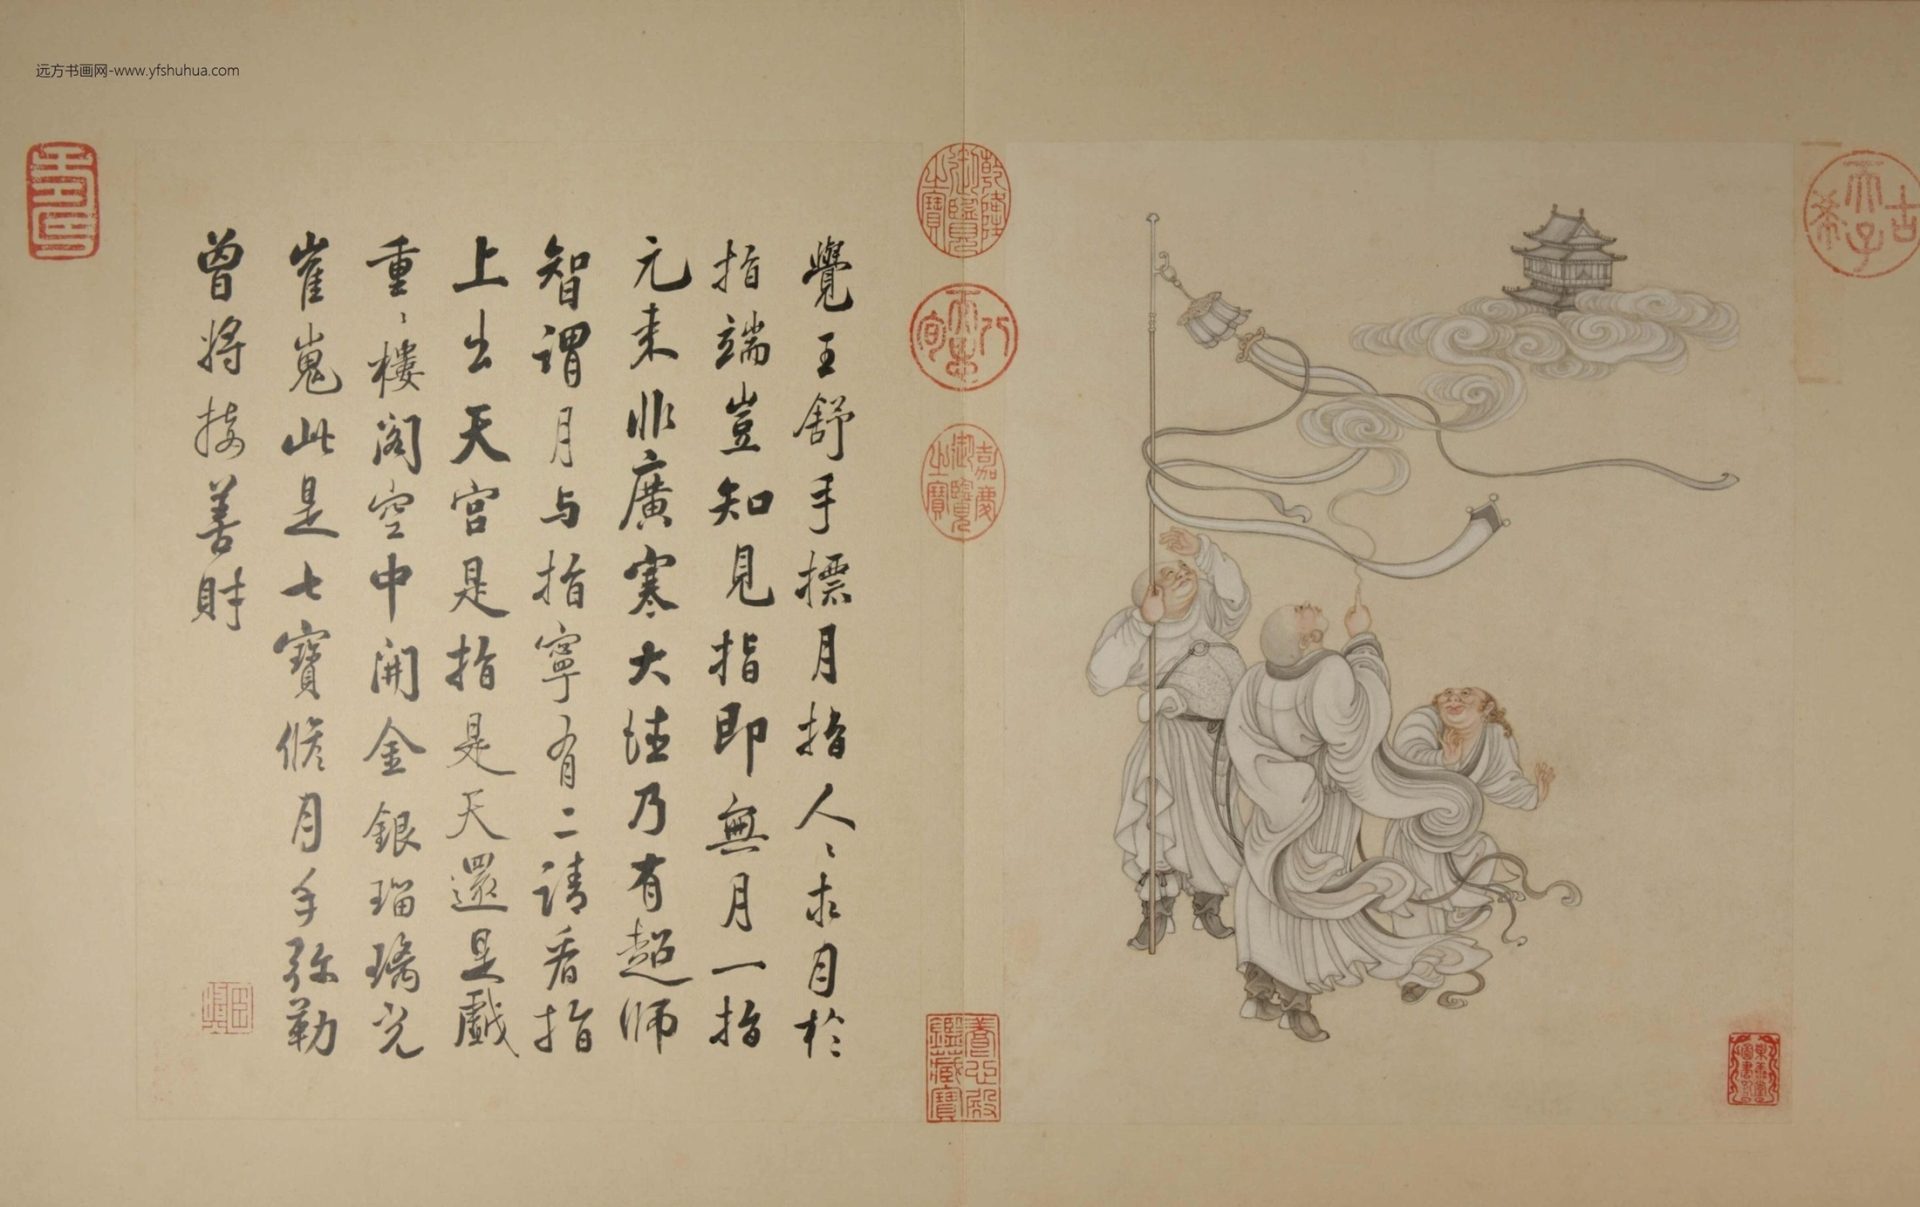 远方书画网-www.yfshuhua.com
古希天子
乾隆御覽之寶
八旬天恩
嘉慶御覽之寶
養心殿鑑藏寶
覺王舒手標月指人〻求月於
指端豈知見指即無月一指
元来非廣寒大法乃有超師
智謂月与指寧有二請看指
上出天宮是指是天還是戲
重〻樓阁空中開金銀瑠璃光
崔嵬此是七寶修月手弥勒
曾将接善財